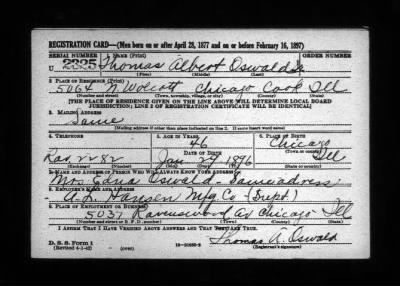 REGISTRATION CARD—(Men born on or after April 28, 1877 and on or before February 16, 1897)
SERIAL NUMBER 1. NAME (Print) ORDER NUMBER
U 2325 Thomas Albert Oswald
(First) (Middle) (Last)
2. PLACE OF RESIDENCE (Print)
5064 N Wolcott Chicago Cook Ill
(Number and street) (Town, township, village, or city) (County) (State)
[THE PLACE OF RESIDENCE GIVEN ON THE LINE ABOVE WILL DETERMINE LOCAL BOARD
JURISDICTION; LINE 2 OF REGISTRATION CERTIFICATE WILL BE IDENTICAL]
3. MAILING ADDRESS
Same
[Mailing address if other than place indicated on line 2. If same insert word same]
4. TELEPHONE 5. AGE IN YEARS 6. PLACE OF BIRTH
46 Chicago
DATE OF BIRTH (Town or county)
Rav. 2282 Jan 24 1896 Ill
(Exchange) (Number) (Mo.) (Day) (Yr.) (State or country)
7. NAME AND ADDRESS OF PERSON WHO WILL ALWAYS KNOW YOUR ADDRESS
Mrs. Edna Oswald - Same address
8. EMPLOYER'S NAME AND ADDRESS
A. L. Hansen Mfg. Co (Supt.)
9. PLACE OF EMPLOYMENT OR BUSINESS
5037 Ravenswood Av Chicago Ill
(Number and street or R. F. D. number) (Town) (County) (State)
I AFFIRM THAT I HAVE VERIFIED ABOVE ANSWERS AND THAT THEY ARE TRUE.
D. S. S. Form 1
(Revised 4-1-42) (over) Thomas A. Oswald
(Registrant's signature)